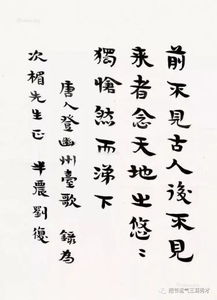 前不見古人後不見
来者念天地之悠〻
獨愴然而涕下
唐人登幽州臺歌 録為
次楣先生正 半農劉復